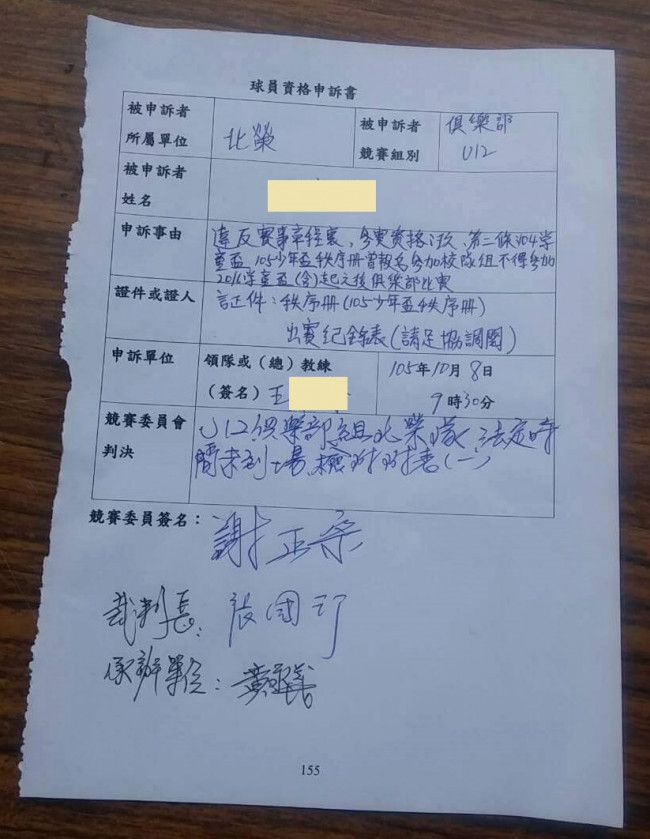 球員資格申訴書
被申訴者
所屬單位
北榮
被申訴者
競賽組別
俱樂部
U12
被申訴者
姓名
申訴事由
違反賽事章程裏、參賽資格 第二條 104學
童盃、105少年盃秩序冊曾報名參加校隊組不得參加
2016學童盃(含)起之後俱樂部比賽
證件或證人
証件：秩序冊(105少年盃秩序冊)
出賽紀錄表(請足協調閱)
申訴單位
領隊或（總）教練
（簽名）王
105年10月8日
9時30分
競賽委員會
判決
U12俱樂部組北榮隊、法定時
間未到場、檢附 (一)
競賽委員簽名：
謝正
裁判長：
張國
承辦單位：黃
155